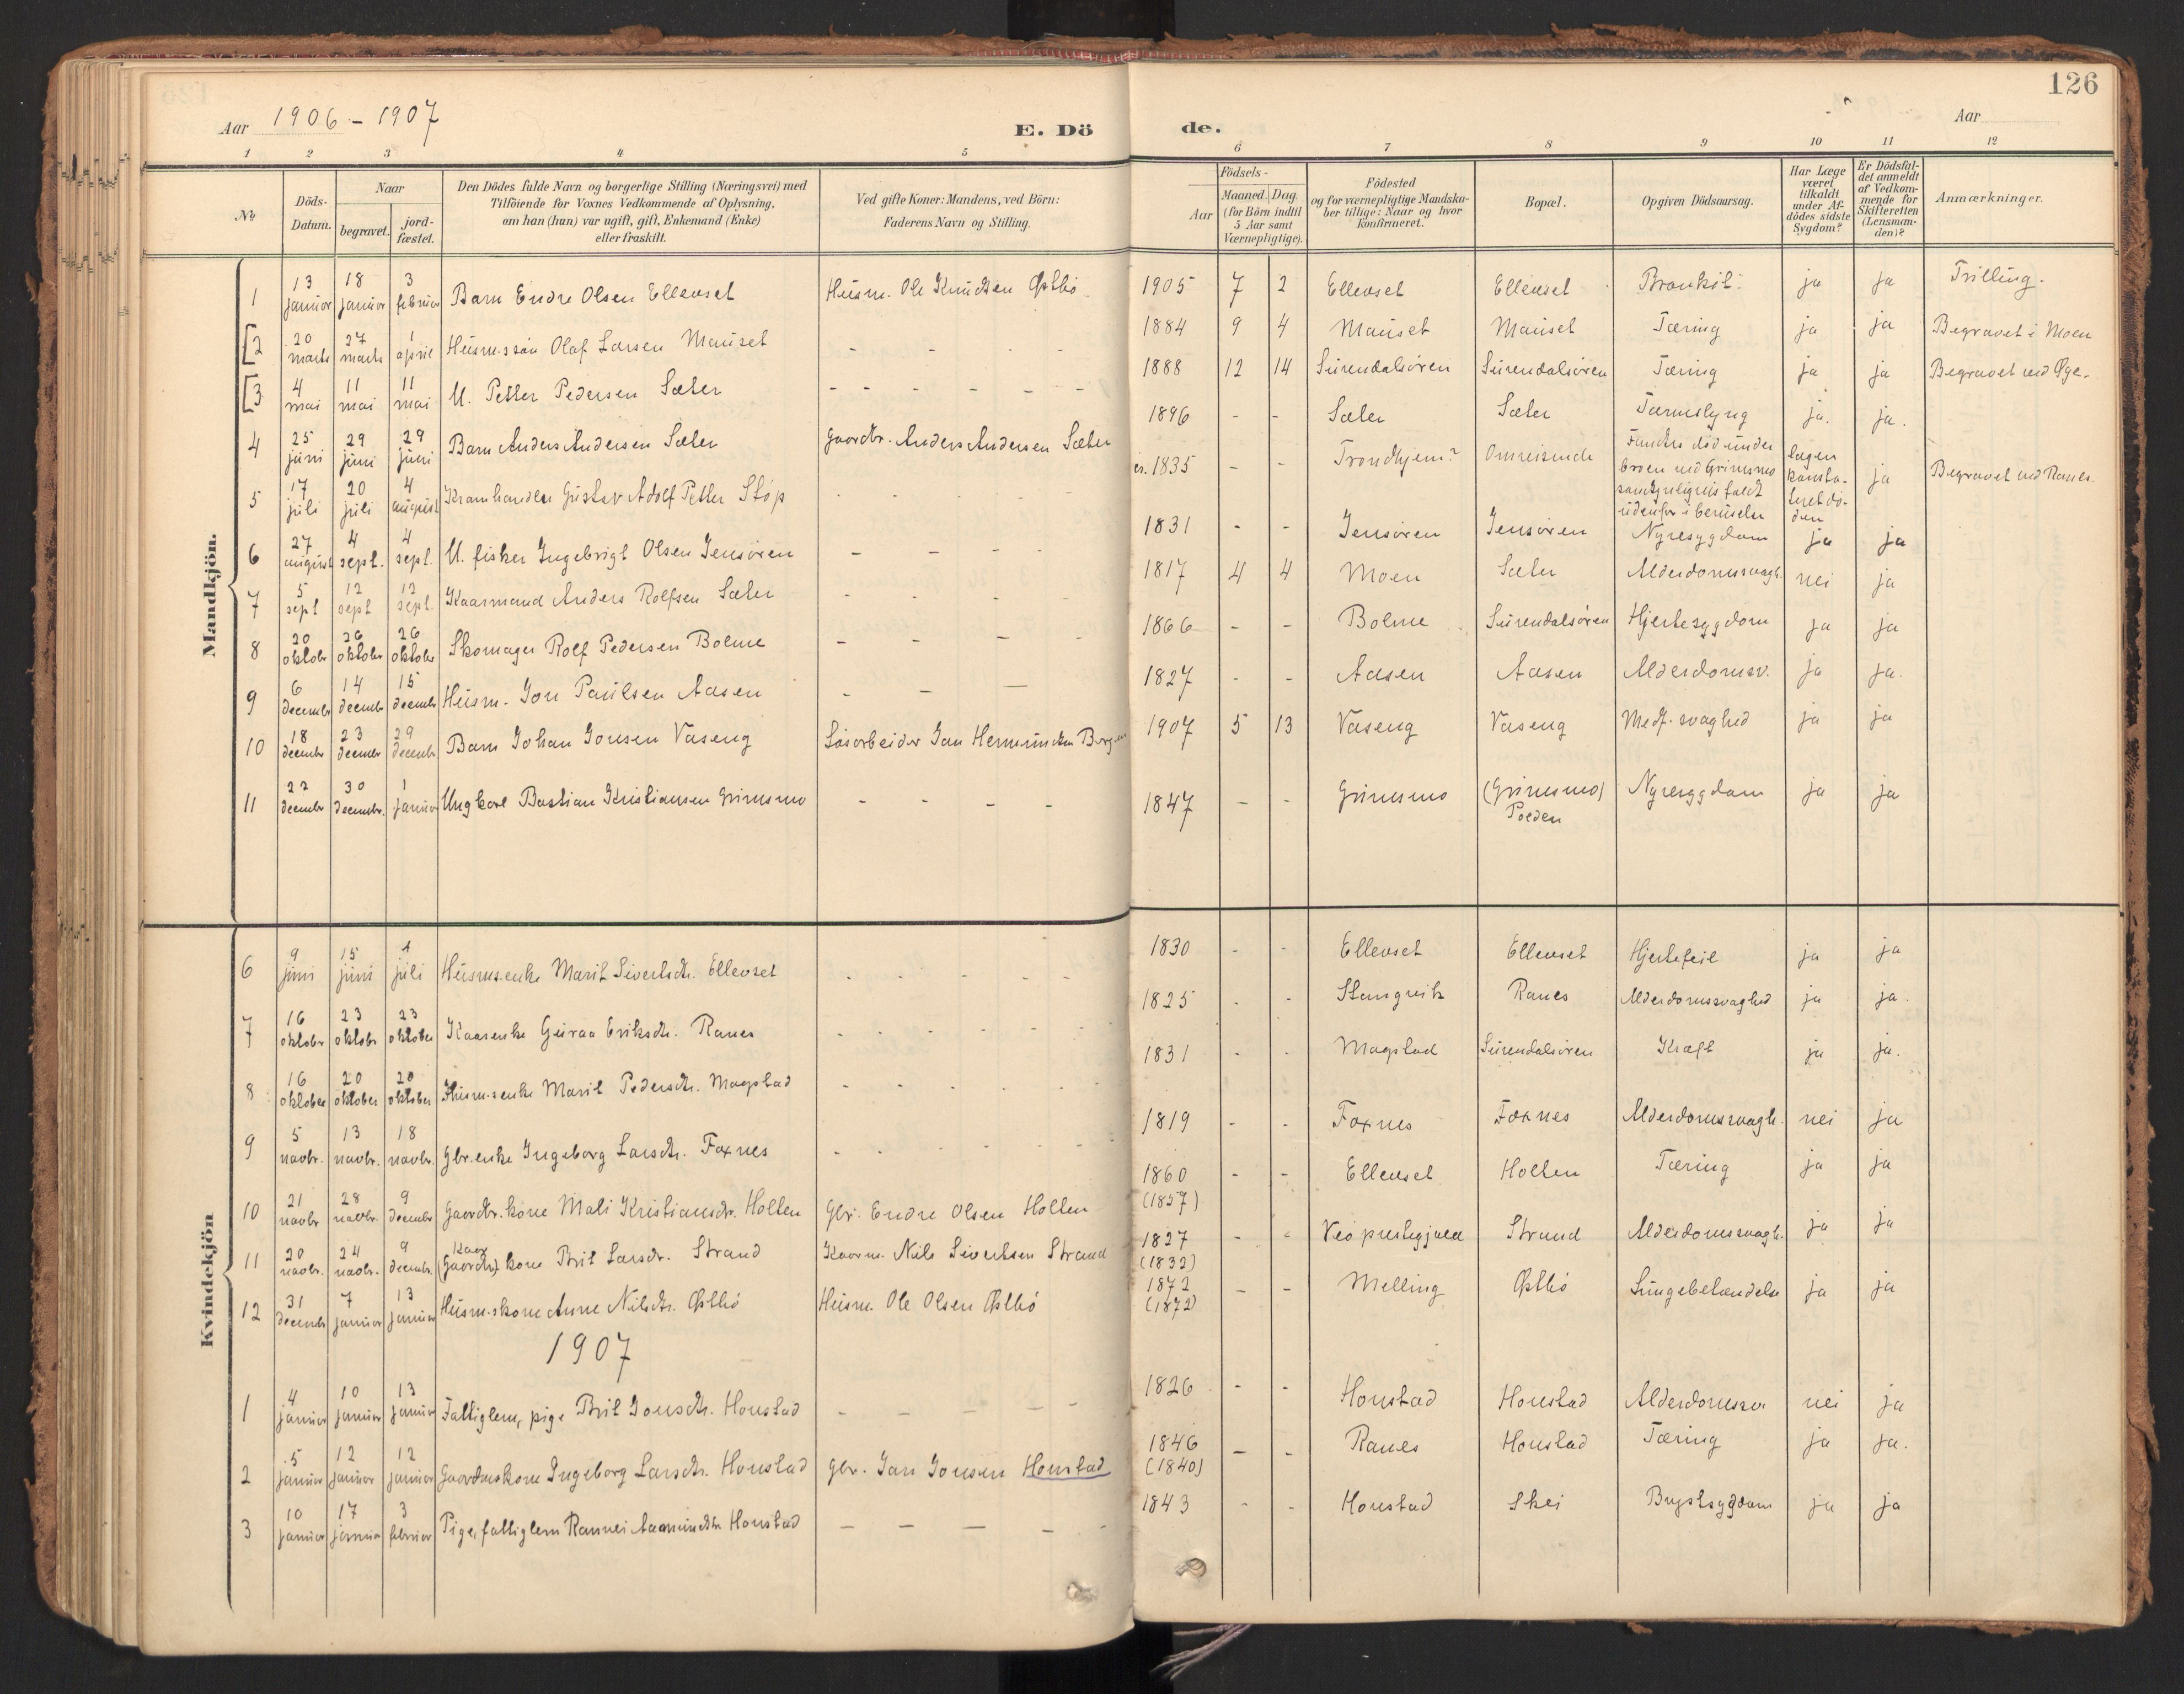 126
Aar 1906 - 1907
E. Dö de.
Aar
1 2 3 4 5 6 7 8 9 10 11 12
No
Döds-Datum.
Naar
begravet.
jord-fæstet.
Den Dödes fulde Navn og borgerlige Stilling (Næringsvei) med
Tilföiende for Voxnes Vedkommende af Oplysning,
om han (hun) var ugift, gift, Enkemand (Enke)
eller fraskilt.
Ved gifte Koner: Mandens, ved Börn:
Faderens Navn og Stilling.
Födsels-
Aar
Maaned. Dag.
(for Börn indtil
5 Aar samt
Værnepligtige).
Födested
og for værnepligtige Mandska-
ber tillige: Naar og hvor
konfirmeret.
Bopæl.
Opgiven Dödsaarsag.
Har Læge
været
tilkaldt
under Af-
dödes sidste
Sygdom?
Er Dödsfal-
det anmeldt
af Vedkom-
mende for
Skifteretten
(Lensman-
den)?
Anmærkninger.
Mandkjön.
1 13 januar 18 januar 3 februar Barn Endre Olsen Ellevset Husm. Ole Knudsen Østbö 1905 7 2 Ellevset Ellevset Bronkit. ja ja Trilling.
[2 20 marts 27 marts 1 april Husm.ssön Olaf Larsen Mauset - - - - 1884 9 4 Mauset Mauset Tæring ja ja Begravet i Moen
[3 4 mai 11 mai 11 mai U. Petter Pedersen Sæter - - - - - - 1888 12 14 Surendalsören Surendalsören Tæring ja ja Begravet ved Øye.
4 25 juni 29 juni 29 juni Barn Anders Andersen Sæter Gaardbr. Anders Andersen Sæter 1896 - - Sæter Sæter Tarmslyng ja. ja.
5 17 juli 20 juli 4 august Kramhandler Gustav Adolf Petter Stöp - - - - ca. 1835 - - Trondhjem? Omreisende Fandtes död under
broen ved Grimsmo
sandsynligvis faldt
udenfor i beruselse lægen
konsta-
teret dö-
den ja Begravet ved Ranes.
6 27 august 4 sept. 4 sept. U. fisker Ingebrigt Olsen Jensören - - - - 1831 - - Jensören Jensören Nyresygdom ja ja
7 5 sept 12 sept 12 sept. Kaarmand Anders Rolfsen Sæter - - - - 1817 4 4 Moen Sæter Alderdomssvagh. nei ja
8 20 oktobr 26 oktobr 26 oktobr Skomager Rolf Pedersen Bolme - - - - 1866 - - Bolme Surendalsören Hjertesygdom ja ja
9 6 decembr 14 decembr 15 decembr Husm. Jon Paulsen Aasen - - - 1827 - - Aasen Aasen Alderdomsv. ja ja.
10 18 decembr 23 decembr 29 decembr Barn Johan Jonsen Vaseng Löisarbeider Jan Hermundsen Bergem 1907 5 13 Vaseng Vaseng Medf. svaghed ja ja
11 22 decembr 30 decembr. 1 januar Ungkarl Bastian Kristiansen Grimsmo - - - - 1847 - - Grimsmo (Grimsmo)
Polden Nyresygdom ja ja
Kvindekjön
6 9 juni 15 juni 1 juli Husms.enke Marit Sivertsdtr. Ellevset - - - - 1830 - - Ellevset Ellevset Hjertefeil ja ja
7 16 oktobr 23 oktobr 23 oktober Kaarenke Guraa Eriksdtr. Ranes - - - - - 1825 - - Stangvik Ranes Alderdomssvaghed ja ja.
8 16 oktober 20 oktober 20 oktober Husm.senke Marit Pedersdtr. Magstad - - - - - 1831 - - Magstad Surendalsören Kræft ja ja.
9 5 novbr. 13 novbr. 18 novbr. Gbr.enke Ingeborg Larsdtr. Foxnes - - - - - 1819 - - Foxnes Foxnes Alderdomssvagh. nei ja
10 21 novbr 28 novbr. 9 decembr Gaardbr.kone Mali Kristiansdr. Holten Gbr. Endre Olsen Holten 1860
(1857) - - Ellevset Holten Tæring ja ja
11 20 novbr. 24 novbr. 9 decembr. Kaar
(Gaardbr) kone Brit Larsdr. Strand Kaarm. Nils Sivertsen Strand 1827
(1832) - - Veö prestegjæld Strand Alderdomssvagh. ja ja
12 31 decembr 7 januar 13 januar Husm.skone Anne Nilsdtr. Østbö Husm. Ole Olsen Østbö 1872
(1872) - - Melling Østbö Lungebetændelse ja ja
1907
1 4 januar 10 januar 13 januar Fattiglem, pige Brit Jonsdtr. Honstad - - - - - 1826 - - Honstad Honstad Alderdomssv. nei ja
2 5 januar 12 januar 12 januar Gaardmskone Ingeborg Larsdtr. Honstad Gbr. Jan Jonsen Honstad 1846
(1840) - - Ranes Honstad Tæring ja ja.
3 10 januar 17 januar 3 februar Pige, fattiglem Rannei Aamundsdtr. Honstad - - - - - 1843 - - Honstad Skei Brystsygdom ja ja